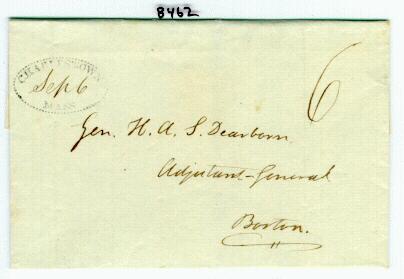 8462
CHARLESTOWN
Sep 6
MASS.
6
Gen. H. A. S. Dearborn
Adjutant-General
Boston.